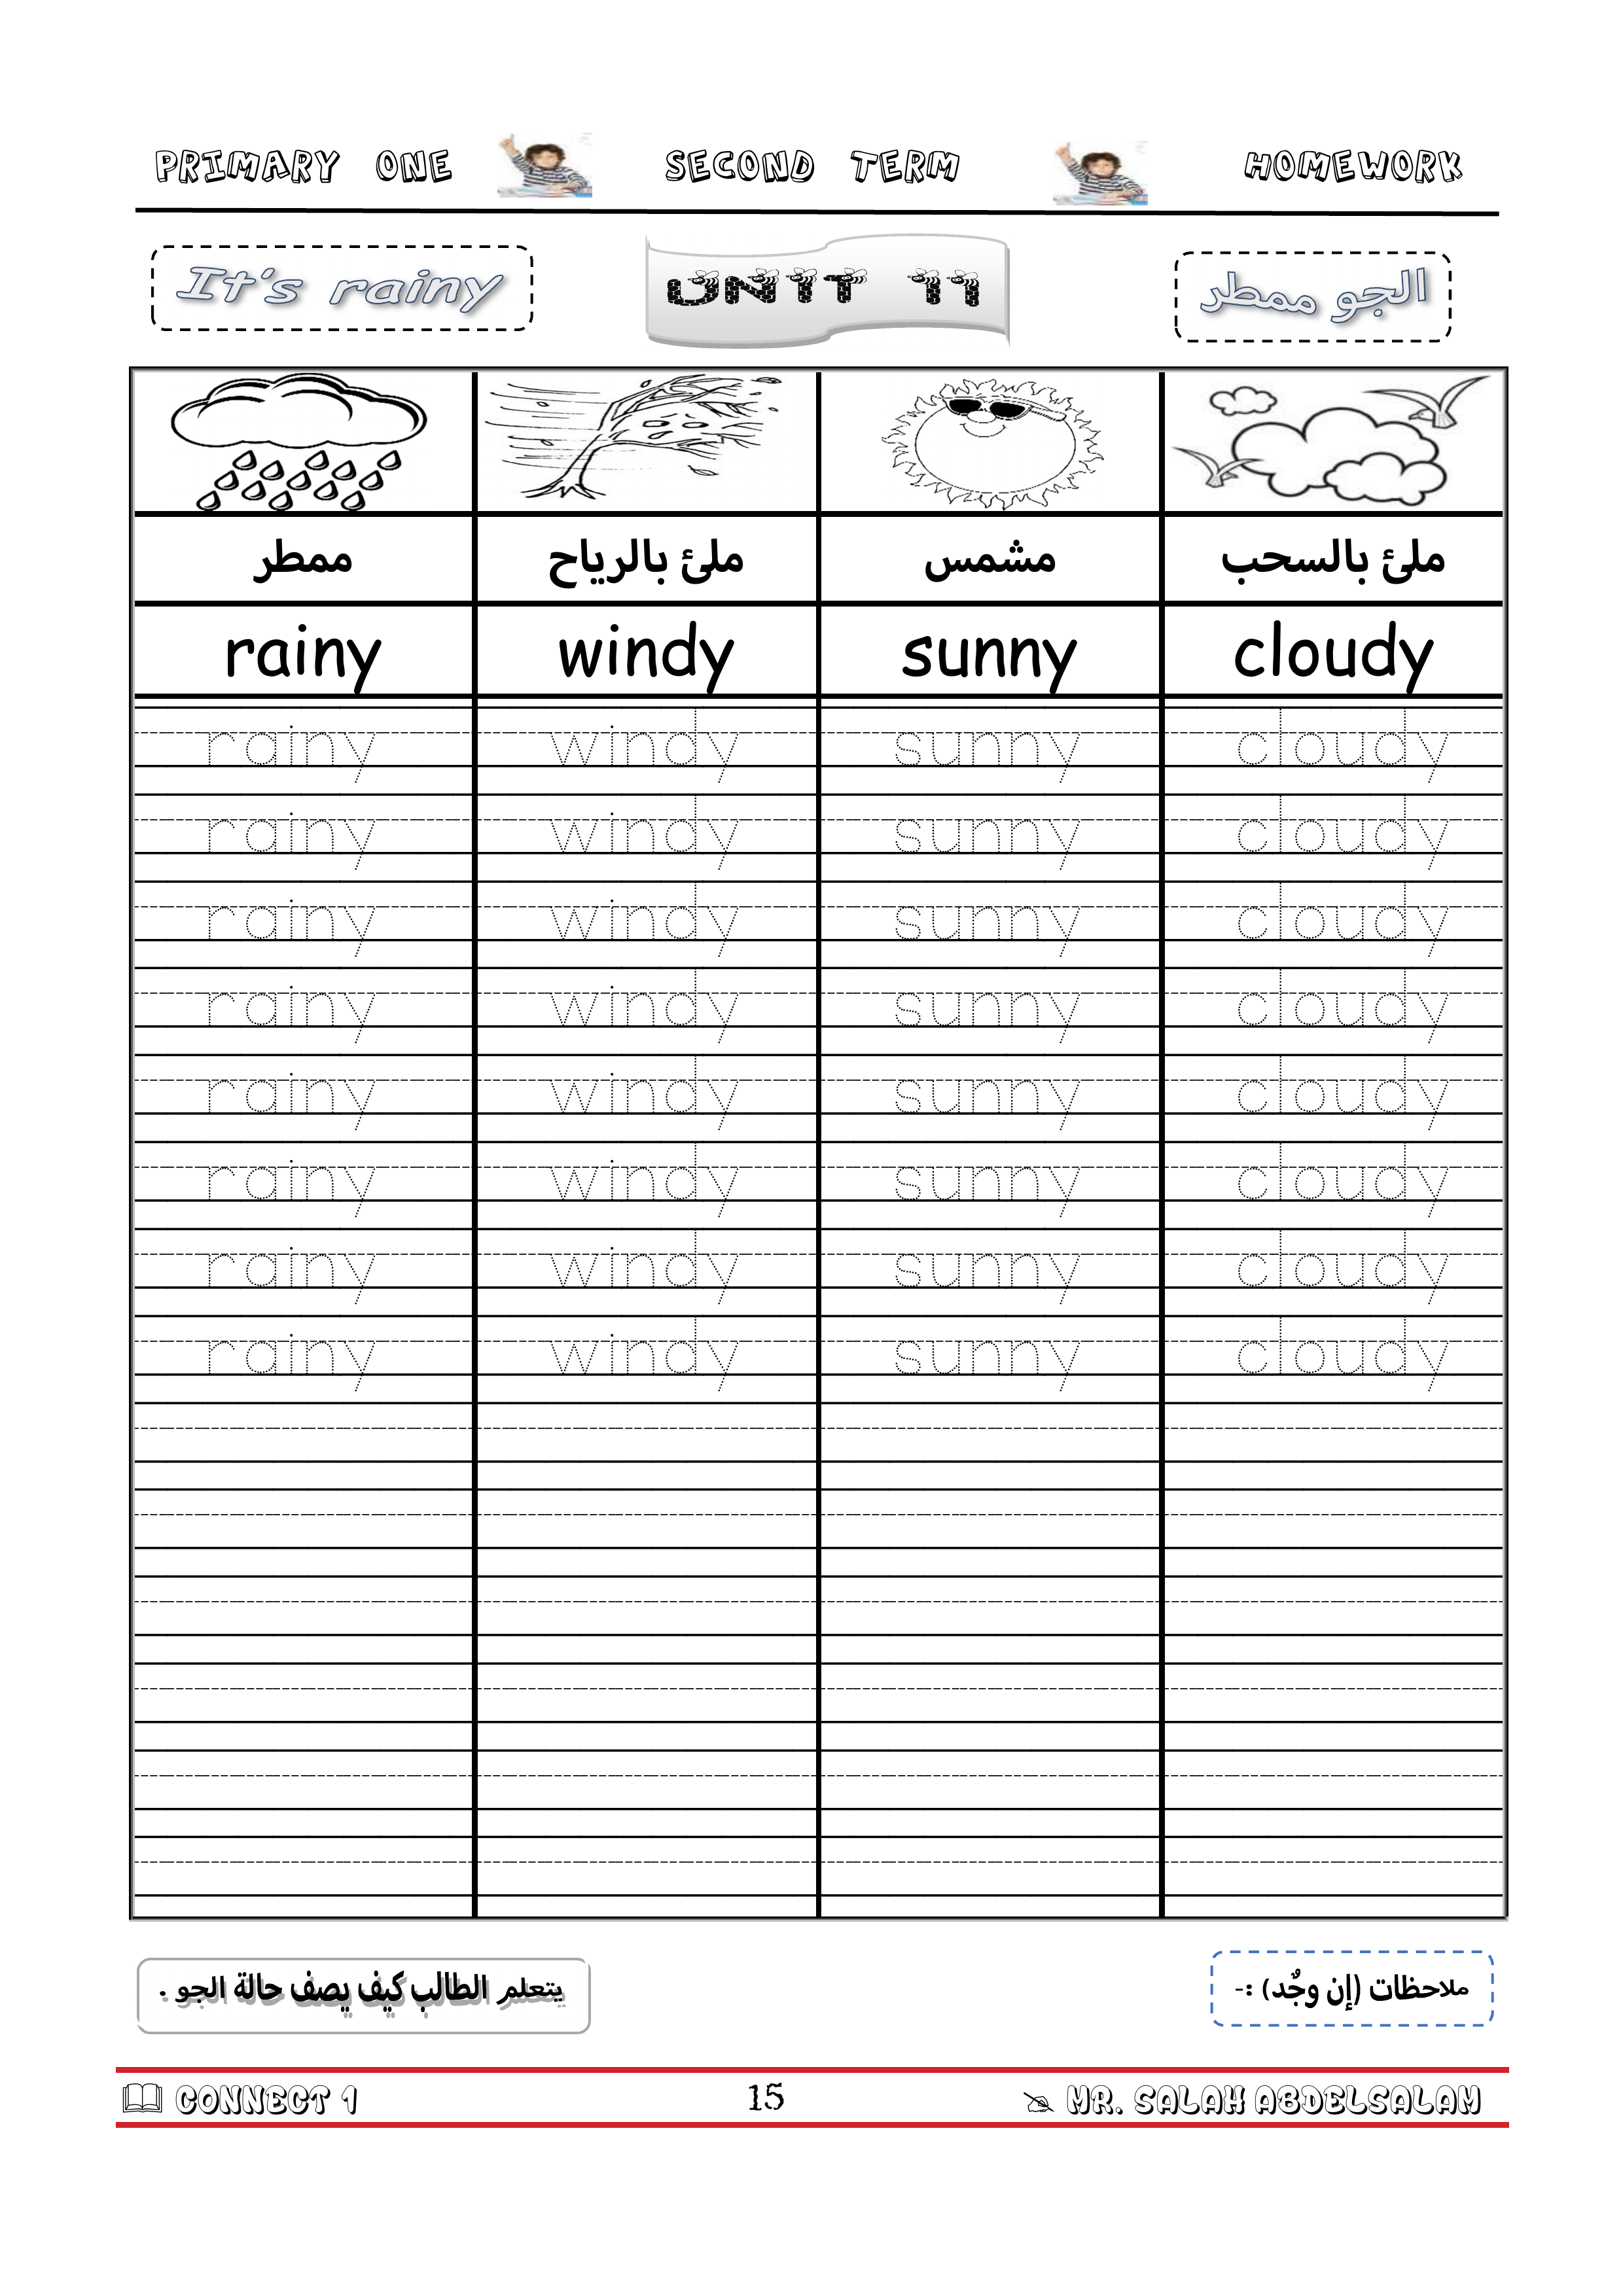 PRIMARY ONE SECOND TERM HOMEWORK
It's rainy UNIT 11 الجو ممطر
ممطر ملئ بالرياح مشمس ملئ بالسحب
rainy windy sunny cloudy
rainy windy sunny cloudy
rainy windy sunny cloudy
rainy windy sunny cloudy
rainy windy sunny cloudy
rainy windy sunny cloudy
rainy windy sunny cloudy
rainy windy sunny cloudy
rainy windy sunny cloudy
يتعلم الطالب كيف يصف حالة الجو . ملاحظات (إن وجٌد) :-
CONNECT 1 15 MR. SALAH ABDELSALAM